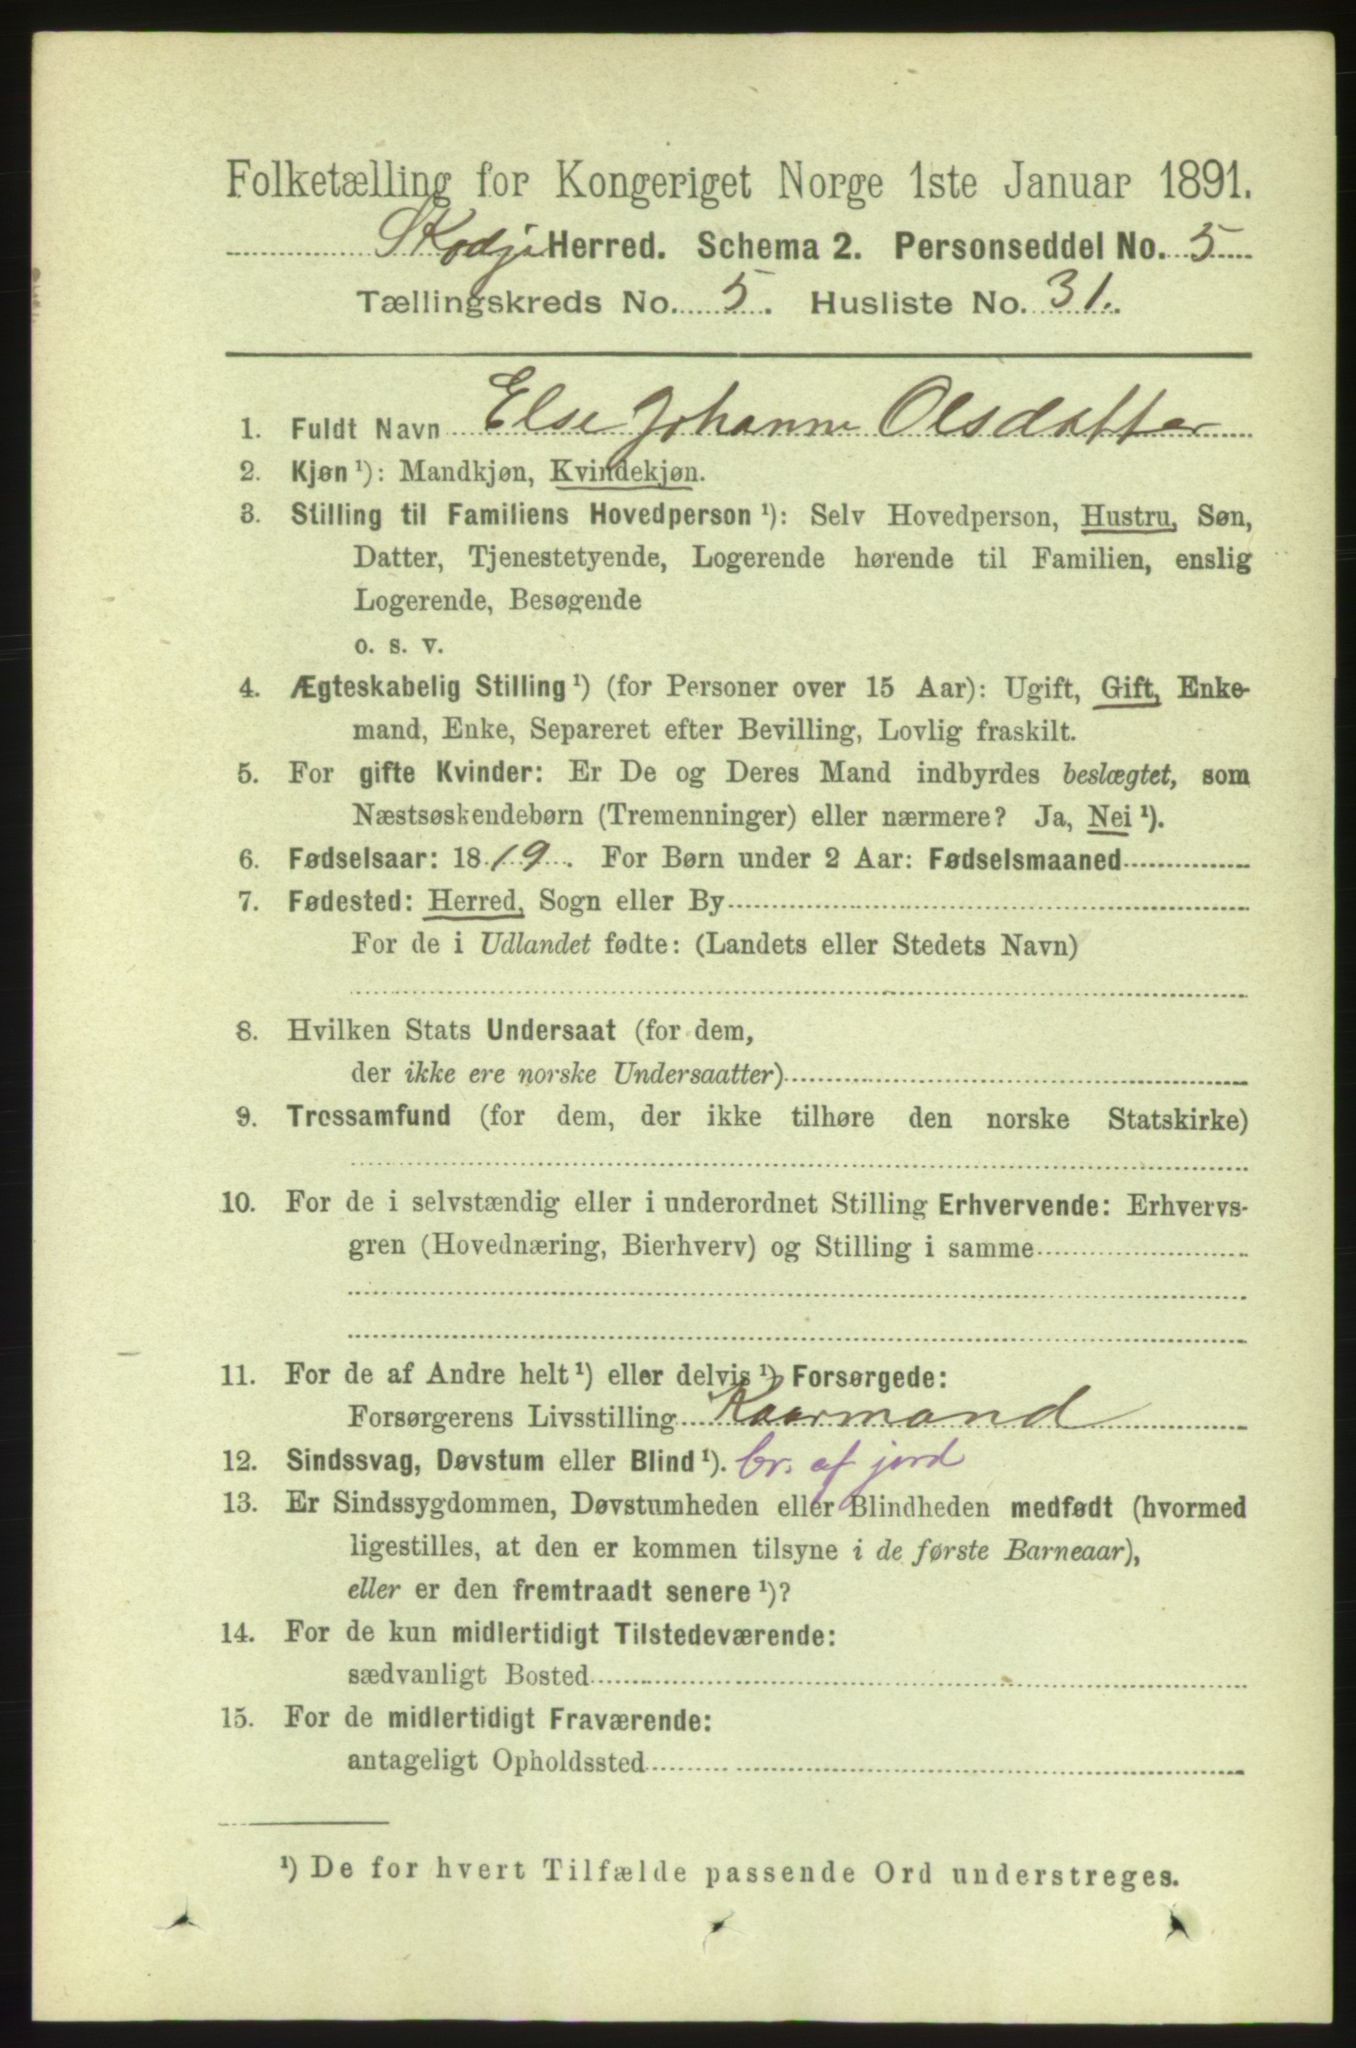 Folketælling for Kongeriget Norge 1ste Januar 1891.
Skodje Herred. Schema 2. Personseddel No. 5
Tællingskreds No. 5. Husliste No. 31.
1. Fuldt Navn Else Johanne Olsdatter
2. Kjøn ¹): Mandkjøn, Kvindekjøn.
3. Stilling til Familiens Hovedperson ¹): Selv Hovedperson, Hustru, Søn,
Datter, Tjenestetyende, Logerende hørende til Familien, enslig
Logerende, Besøgende
o. s. v.
4. Ægteskabelig Stilling ¹) (for Personer over 15 Aar): Ugift, Gift, Enke-
mand, Enke, Separeret efter Bevilling, Lovlig fraskilt.
5. For gifte Kvinder: Er De og Deres Mand indbyrdes beslægtet, som
Næstsøskendebørn (Tremenninger) eller nærmere? Ja, Nei ¹).
6. Fødselsaar: 1819. For Børn under 2 Aar: Fødselsmaaned
7. Fødested: Herred, Sogn eller By
For de i Udlandet fødte: (Landets eller Stedets Navn)
8. Hvilken Stats Undersaat (for dem,
der ikke ere norske Undersaatter)
9. Trossamfund (for dem, der ikke tilhøre den norske Statskirke)
10. For de i selvstændig eller i underordnet Stilling Erhvervende: Erhvervs-
gren (Hovednæring, Bierhverv) og Stilling i samme
11. For de af Andre helt ¹) eller delvis ¹) Forsørgede:
Forsørgerens Livsstilling Kaarmand
12. Sindssvag, Døvstum eller Blind ¹). br. af jord
13. Er Sindssygdommen, Døvstumheden eller Blindheden medfødt (hvormed
ligestilles, at den er kommen tilsyne i de første Barneaar),
eller er den fremtraadt senere ¹)?
14. For de kun midlertidigt Tilstedeværende:
sædvanligt Bosted
15. For de midlertidigt Fraværende:
antageligt Opholdssted
¹) De for hvert Tilfælde passende Ord understreges.